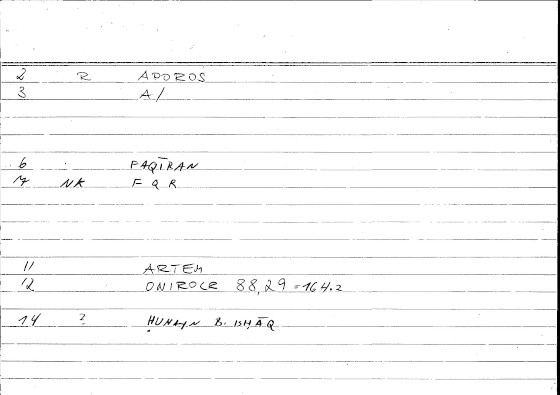 2 R APOROS
3 A/
6 FAQĪRAN
7 NK F Q R
11 ARTEM
12 ONIROCR 88,29 = 164.2
14 ? ḤUNAYN B. ISḤĀQ